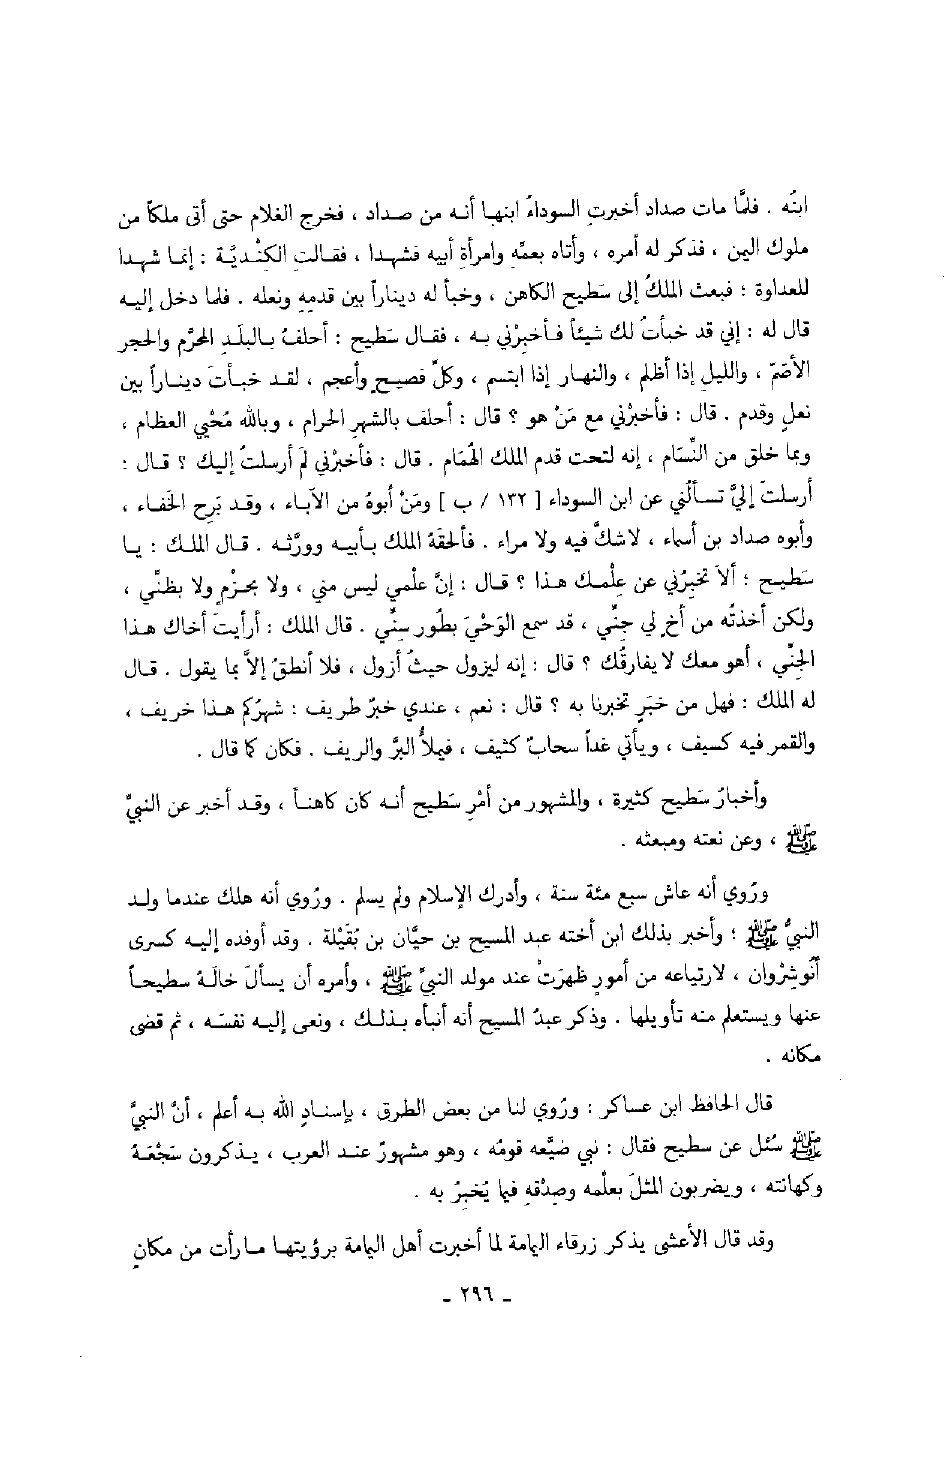 ابنُه . فلمَّا مات صداد أخبرتِ السوداءُ ابنها أنه من صداد ، فخرج الغلام حتى أتى ملكاً من
ملوك اليمن ، فذكر له أمره ، وأتاه بعمِّه وامرأةِ أبيه فشهدا ، فقالتِ الكِنْديَّة : إنما شهدا
للعداوة ؛ فبعث الملكُ إلى سَطيح الكاهن ، وخبأ له ديناراً بين قدمِهِ ونعله . فلما دخل إليه
قال له : إني قد خبأتُ لك شيئاً فأخبِرْني به ، فقال سَطيح : أحلفُ بالبلَدِ المحرَّم والحجر
الأصَمّ ، والليلِ إذا أظلم ، والنهار إذا ابتسم ، وكلِّ فصيحٍ وأعجم ، لقد خبأتَ ديناراً بين
نعلٍ وقدم . قال : فأخبِرْني مع مَنْ هو ؟ قال : أحلف بالشهرِ الحرام ، وبالله مُحْيي العظام ،
وبما خلق من النَّسَام ، إنه لتحت قدم الملك الهُمَام . قال : فأخبِرْني لمَ أرسلتُ إليك ؟ قال :
أرسلتَ إليَّ تسألُني عن ابن السوداء [ ١٣٢ / ب ] ومَنْ أبوهُ من الآباء ، وقد بَرِح الخَفاء ،
وأبوه صداد بن أسماء ، لاشكَّ فيه ولا مراء . فألحقَهُ الملك بأبيه وورَّثه . قال الملك : يا
سَطيح ؛ ألاَ تخبِرُني عن عِلْمك هذا ؟ قال : إنَّ علْمي ليس مني ، ولا بجزْمٍ ولا بظنِّي ،
ولكن أخذتُه من أخٍ لي جنِّي ، قد سمع الوَحْيَ بطُور سنِّي . قال الملك : أرأيتَ أخاك هذا
الجنِّي ، أهو معك لا يفارقُك ؟ قال : إنه ليزول حيثُ أزول ، فلا أنطقُ إلاَّ بما يقول . قال
له الملك : فهل من خبَرٍ تخبرنا به ؟ قال : نعم ، عندي خبرٌ طريف : شهرُكم هذا خريف ،
والقمر فيه كسيف ، ويأتي غداً سحابٌ كثيف ، فيملأُ البرَّ والريف . فكان كما قال .
وأخبارُ سَطيح كثيرة ، والمشهور من أمْرِ سَطيح أنه كان كاهناً ، وقد أخبر عن النبيِّ
ﷺ ، وعن نعته ومبعثه .
ورُوي أنه عاش سبع مئة سنة ، وأدرك الإسلام ولم يسلم . ورُوي أنه هلك عندما ولد
النبيُّ ﷺ ؛ وأخبر بذلك ابن أخته عبد المسيح بن حيَّان بن بُقَيْلة . وقد أوفده إليه كسرى
أنُوشِرْوان ، لارتياعه من أمورٍ ظهرَتْ عند مولد النبيِّ ﷺ ، وأمره أن يسألَ خالَهُ سطيحاً
عنها ويستعلم منه تأويلها . وذكر عبدُ المسيح أنه أنبأه بذلك ، ونعى إليه نفسَه ، ثم قضى
مكانه .
قال الحافظ ابن عساكر : ورُوي لنا من بعض الطرق ، بإسنادٍ الله به أعلم ، أنَّ النبيَّ
ﷺ سُئل عن سطيح فقال : نبي ضيَّعه قومُه ، وهو مشهورٌ عند العرب ، يذكرون سَجْعَهُ
وكهانته ، ويضربون المثلَ بعلْمه وصِدْقه فيما يُخبِرُ به .
وقد قال الأعشى يذكر زرقاء اليمامة لما أخبرت أهل اليمامة برؤيتها ما رأت من مكانٍ
ـ ٢٩٦ ـ